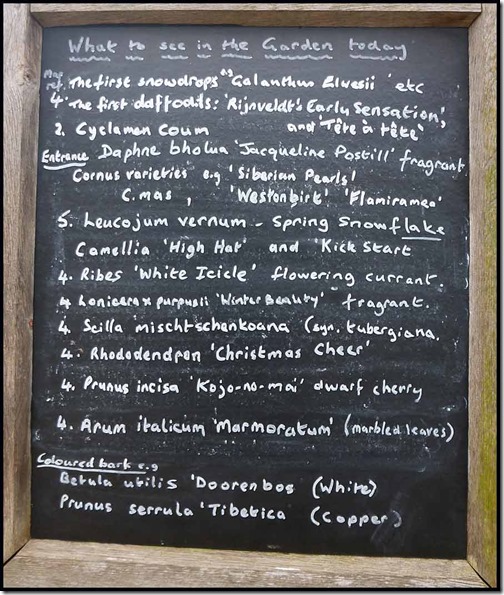 What to see in the Garden today
Map ref. The first snowdrops Galanthus Elwesii etc
4 The first daffodils: 'Rijnveldt's Early Sensation',
and 'Tête à tête'
2. Cyclamen Coum
Entrance Daphne bholua 'Jacqueline Postill' fragrant
Cornus varieties e.g 'Siberian Pearls'
C. mas , 'Westonbirt' 'Flamiramea'
5. Leucojum vernum - Spring Snowflake
Camellia 'High Hat' and 'Kick Start
4. Ribes 'White Icicle' flowering currant.
4 Lonicera x purpusii 'Winter Beauty' fragrant.
4. Scilla mischtschenkoana (syn. tubergiana.
4. Rhododendron 'Christmas Cheer'
4. Prunus incisa 'Kojo-no-mai' dwarf cherry
4. Arum italicum 'Marmoratum' (marbled leaves)
Coloured bark e.g
Betula utilis 'Doorenbos (White)
Prunus serrula 'Tibetica (Copper)